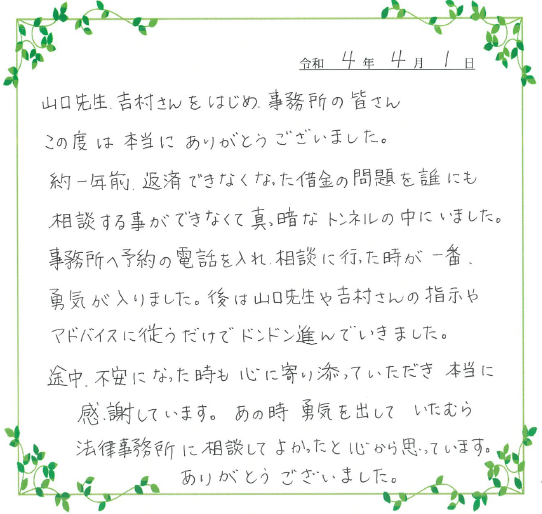 令和 4 年 4 月 1 日
山口先生、吉村さんをはじめ、事務所の皆さん
この度は本当にありがとうございました。
約一年前、返済できなくなった借金の問題を誰にも
相談する事ができなくて真っ暗なトンネルの中にいました。
事務所へ予約の電話を入れ、相談に行った時が一番、
勇気が入りました。後は山口先生や吉村さんの指示や
アドバイスに従うだけでドンドン進んでいきました。
途中、不安になった時も心に寄り添っていただき本当に
感謝しています。あの時勇気を出していたむら
法律事務所に相談してよかったと心から思っています。
ありがとうございました。